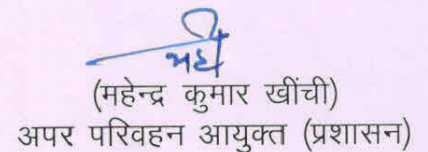 (महेन्द्र कुमार खींची)
अपर परिवहन आयुक्त (प्रशासन)